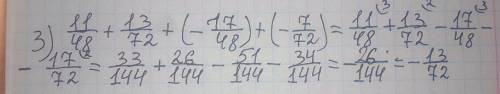 3) 11/48 + 13/72 + (- 17/48) + (- 7/72) = 11/48 ³ + 13/72 ² - 17/48 ³ -
- 17/72 ² = 33/144 + 26/144 - 51/144 - 34/144 = - 26/144 = - 13/72